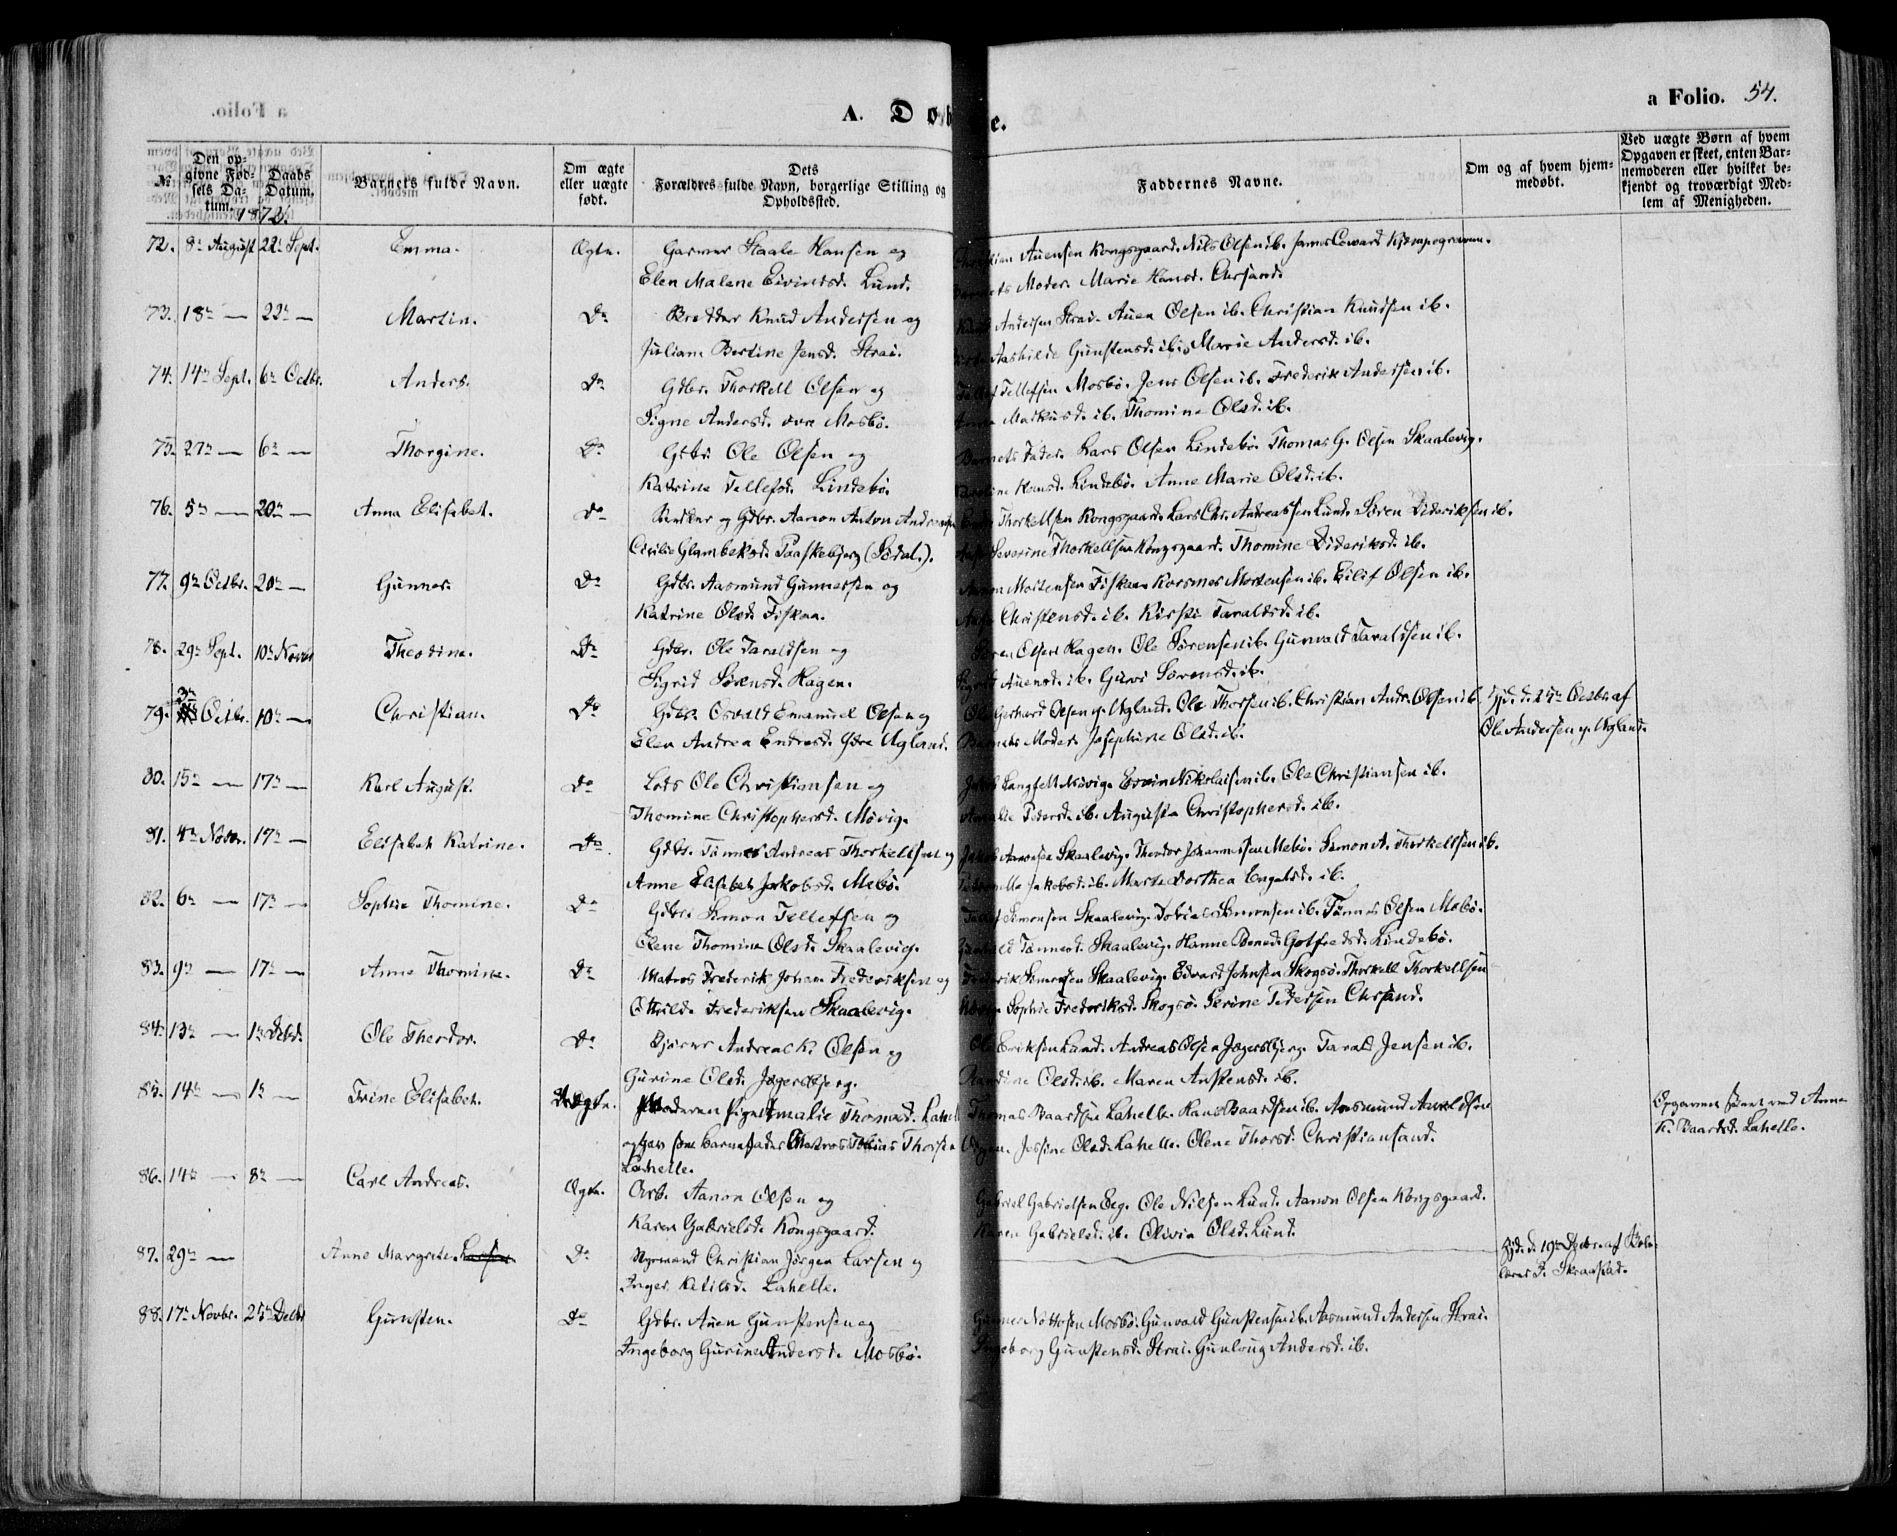 A. Døbte.
a Folio. 54.
No.
Den opgivne Fødsels Datum.
Daabs Datum.
Barnets fulde Navn.
Om ægte eller uægte født.
Dets Forældres fulde Navn, borgerlige Stilling og Opholdssted.
Faddernes Navne.
Om og af hvem hjemmedøbt.
Ved uægte Børn af hvem Opgaven er skeet, enten Barnemoderen eller hvilket bekjendt og troværdigt Medlem af Menigheden.
1872.
72. 8de August 22de Sept. Emma. Ægte. Garver Staale Hansen og
Elen Malene Eivindsd. Lund.
Auensen Kongsgaard. Nils Olsen ib. James Coward
Moder. Marie Hansd. Chrsand.
73. 18de — 22de — Martin. Do Knud Andersen og
Juliane Bertine Jensd. Strai.
Andersen Strai. Auen Olsen ib. Christian Knudsen ib.
Aashilde Gunstensd. ib. Marie Andersd. ib.
74. 14de Sept. 6te Octbr. Anders. Do Gdbr. Thorkell Olsen og
Signe Andersd. øvre Mosbø.
Tellefsen Mosbø. Jens Olsen ib. Frederik Andersen ib.
Markusd. ib. Thomine Olsd. ib.
75. 27de — 6te — Thorgine. Do Gdbr. Ole Olsen og
Katrine Tellefsd. Lindebø.
Barnets Fader. Lars Olsen Lindebø. Thomas G. Olsen Skaalevig.
Hansd. Lindebø. Anne Marie Olsd. ib.
76. 5te — 20de — Anna Elisabet. Do og Gdbr. Aanon Anton
Cicilie Glambeksd. Paaskebjerg (Sødal.).
Thorkellsen Kongsgaard. Lars Chr. Andreassen Lund. Søren Dideriksen ib.
Severine Thorkellsen Kongsgaard. Thomine Dideriksd. ib.
77. 9de Octbr. 20de — Gunner. Do Gdbr. Aasmund Gunnersen og
Katrine Olsd. Fiskaa.
Mortensen Fiskaa. Mortensen ib. Eilif Olsen ib.
Christensd. ib. Kirsti Taraldsd. ib.
78. 29de Sept. 10de Novbr Theodine. Do Gdbr. Ole Taraldsen og
Sigrid Sørensd. Hagen.
Søren Olsen Hagen. Ole Sørensen ib. Gunvald Taraldsen ib.
Sigrid Auensd. ib. Guroi Sørensd. ib.
79. 3de Octbr. 10de — Christian. Do Gdbr. Osvald Emanuel Olsen og
Elen Andrea Endresd. Ydre Ugland.
Ole Gerhard Olsen y. Ugland. Ole Thorsen ib. Christian Andr. Olsen ib.
Barnets Moder. Josephine Olsd. ib.
Hjd. d. 17de Octbr. af
Ole Andersen y. Ugland.
80. 15de — 17de — Karl August. Do Lods Ole Christiansen og
Thomine Christophersd. Møvig.
Langfelt Møvig. Nikolaisen ib. Ole Christiansen ib.
Pedersd. ib. Augusta Christophersd. ib.
81. 4de Novbr. 17de — Elisabet Katrine. Do Gdbr. Tønnes Andreas Thorkellsen og
Anne Elisabet Jakobsd. Mebø.
Jakob Aanonsen Skaalevig. Theodor Johannessen Mebø. Simon A. Thorkellsen ib.
Jakobsd. ib. Marte Dorthea Engelsd. ib.
82. 6te — 17de — Sophie Thomine. Do Gdbr. Simon Tellefsen og
Olene Thomine Olsd. Skaalevig.
Simonsen Skaalevig. Tobias Simonsen ib. Tønnes Olsen Mebø.
Tønnesd. Skaalevig. Hanne Bened. Gotfredsd. Lindebø.
83. 9de — 17de — Anne Thomine. Do Matros Frederik Johan Frederiksen og
Othilde Frederiksen Skaalevig.
Frederik Simonsen Skaalevig. Edvard Johnsen Skogsø. Thorkell Thorkellsen
Møvig. Sophie Frederiksd. Skogsø. Serine Pedersen Chrsand.
84. 13de — 1ste Debr. Ole Theodor. Do Andreas K. Olsen og
Gurine Olsd. Jægersbjerg.
Ole Eriksen Lund. Andreas Olsen Jægersbjerg. Tarald Jensen ib.
Olsd. ib. Maren Anstensd. ib.
85. 14de — 1ste — Trine Elisabet. Uægte. Moderen Pigen Amalie Thomasd. Lahelle
og gav som Barnefader Matros Tobias Thorsen
Lahelle.
Thomas Baardsen Lahelle. Hans Baardsen ib. Aasmund
Jossine Olsd. Lahelle. Olene Thorsd. Christiansand.
Opgaven skeet ved Anne
K. Baardsd. Lahelle.
86. 14de — 8de — Carl Andreas. Ægte. Arb. Aanon Olsen og
Karen Gabrielsd. Kongsgaard.
Gabriel Gabrielsen Eeg. Ole Nilsen Lund. Aanon Olsen Kongsgaard.
Karen Gabrielsd. ib. Olivia Olsd. Lund.
87. 29de — Anne Margrete. Do Styrmand Christian Jørgen Larsen og
Inger Ketilsd. Lahelle.
Hjd. d. 19de Debr. af
lærer P. Skraastad.
88. 17de Novbr. 25de Debr Gunsten. Do Gdbr. Auen Gunstensen og
Ingeborg Gurine Andersd. Mosbø.
Gunner Nottosen Mosbø. Gunvald Gunstensen ib. Aasmund Andersen Strai.
Ingeborg Gunstensd. Strai. Gunloug Andersd. ib.